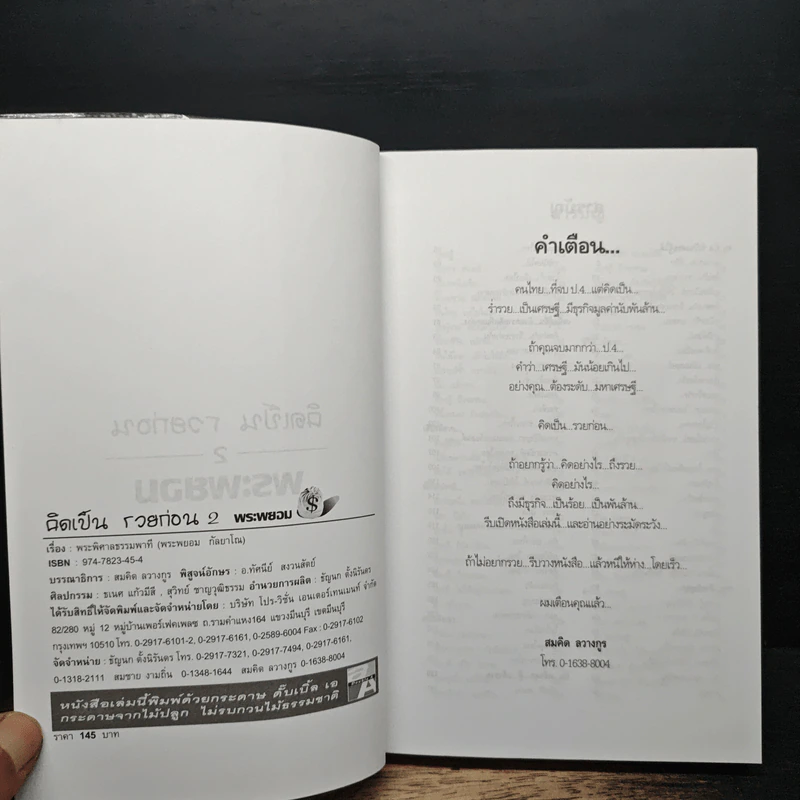 คิดเป็น รวยก่อน 2 พระพยอม
เรื่อง : พระพิศาลธรรมพาที (พระพยอม กัลยาโณ)
ISBN : 974-7823-45-4
บรรณาธิการ : สมคิด ลวางกูร พิสูจน์อักษร : อ.ทัศนีย์ สงวนสัตย์
ศิลปกรรม : ธเนศ แก้วมีสี , สุวิทย์ ชาญวุฒิธรรม อำนวยการผลิต : ธัญนก ตั้งนิรันดร
ได้รับสิทธิ์ให้จัดพิมพ์และจัดจำหน่ายโดย : บริษัท โปร-วิชั่น เอนเตอร์เทนเมนท์ จำกัด
82/280 หมู่ 12 หมู่บ้านเพอร์เฟคเพลซ ถ.รามคำแหง164 แขวงมีนบุรี เขตมีนบุรี
กรุงเทพฯ 10510 โทร. 0-2917-6101-2, 0-2917-6161, 0-2589-6004 Fax : 0-2917-6102
จัดจำหน่าย : ธัญนก ตั้งนิรันดร โทร. 0-2917-7321, 0-2917-7494, 0-2917-6161,
0-1318-2111 สมชาย งามถิ่น 0-1348-1644 สมคิด ลวางกูร 0-1638-8004
หนังสือเล่มนี้พิมพ์ด้วยกระดาษ ดับเบิ้ล เอ
กระดาษจากไม้ปลูก ไม่รบกวนไม้ธรรมชาติ
ราคา 145 บาท
คำเตือน...
คนไทย...ที่จบ ป.4...แต่คิดเป็น
ร่ำรวย...เป็นเศรษฐี...มีธุรกิจมูลค่านับพันล้าน...
ถ้าคุณจบมากกว่า...ป.4...
คำว่า...เศรษฐี...มันน้อยเกินไป...
อย่างคุณ...ต้องระดับ...มหาเศรษฐี...
คิดเป็น...รวยก่อน...
ถ้าอยากรู้ว่า...คิดอย่างไร...ถึงรวย...
คิดอย่างไร...
ถึงมีธุรกิจ...เป็นร้อย...เป็นพันล้าน...
รีบเปิดหนังสือเล่มนี้...และอ่านอย่างระมัดระวัง...
ถ้าไม่อยากรวย...รีบวางหนังสือ...แล้วหนีให้ห่าง...โดยเร็ว...
ผมเตือนคุณแล้ว...
สมคิด ลวางกูร
โทร. 0-1638-8004